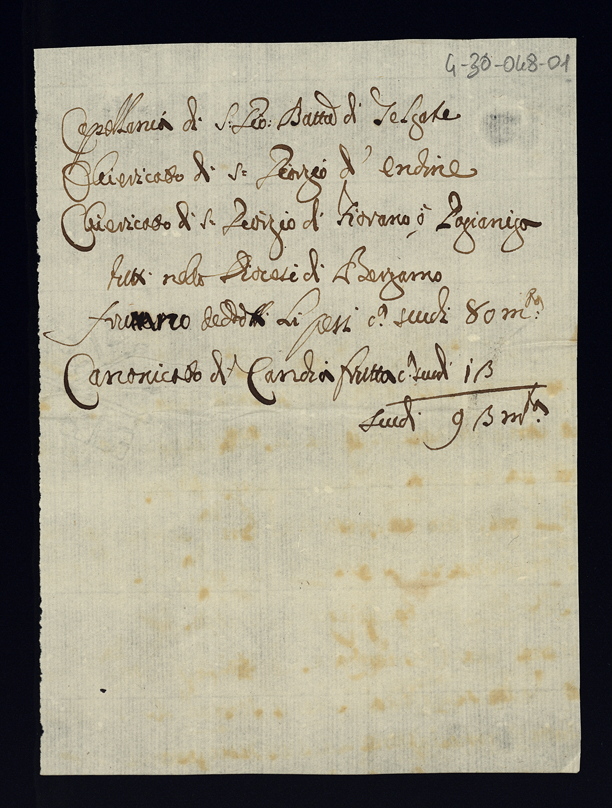 4-30-048-01
Capellania di S. Gio: Batta di Telgate
Chiericato di S. Giorgio d' Endine
Chiericato di S. Giorgio di Fiorano ò Gogianigo
tutti nella Diocesi di Bergamo
fruttano dedotti li pesi c.a scudi 80 m.ta
Canonicato di Candia frutta c.a scudi 13
scudi 93 m.ta